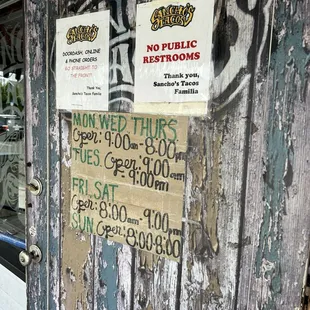 SANCHO'S
TACOS
DOORDASH, ONLINE
& PHONE ORDERS
GO STRAIGHT TO
THE FRONT!
Thank You,
Sancho's Tacos Familia
SANCHO'S
TACOS
NO PUBLIC
RESTROOMS
Thank you,
Sancho's Tacos
Familia
MON WED THURS
Open: 9:00am - 8:00pm
TUES. Open: 9:00am
- 9:00pm
FRI. SAT
Open: 8:00am - 9:00pm
SUN Open: 8:00-8:00